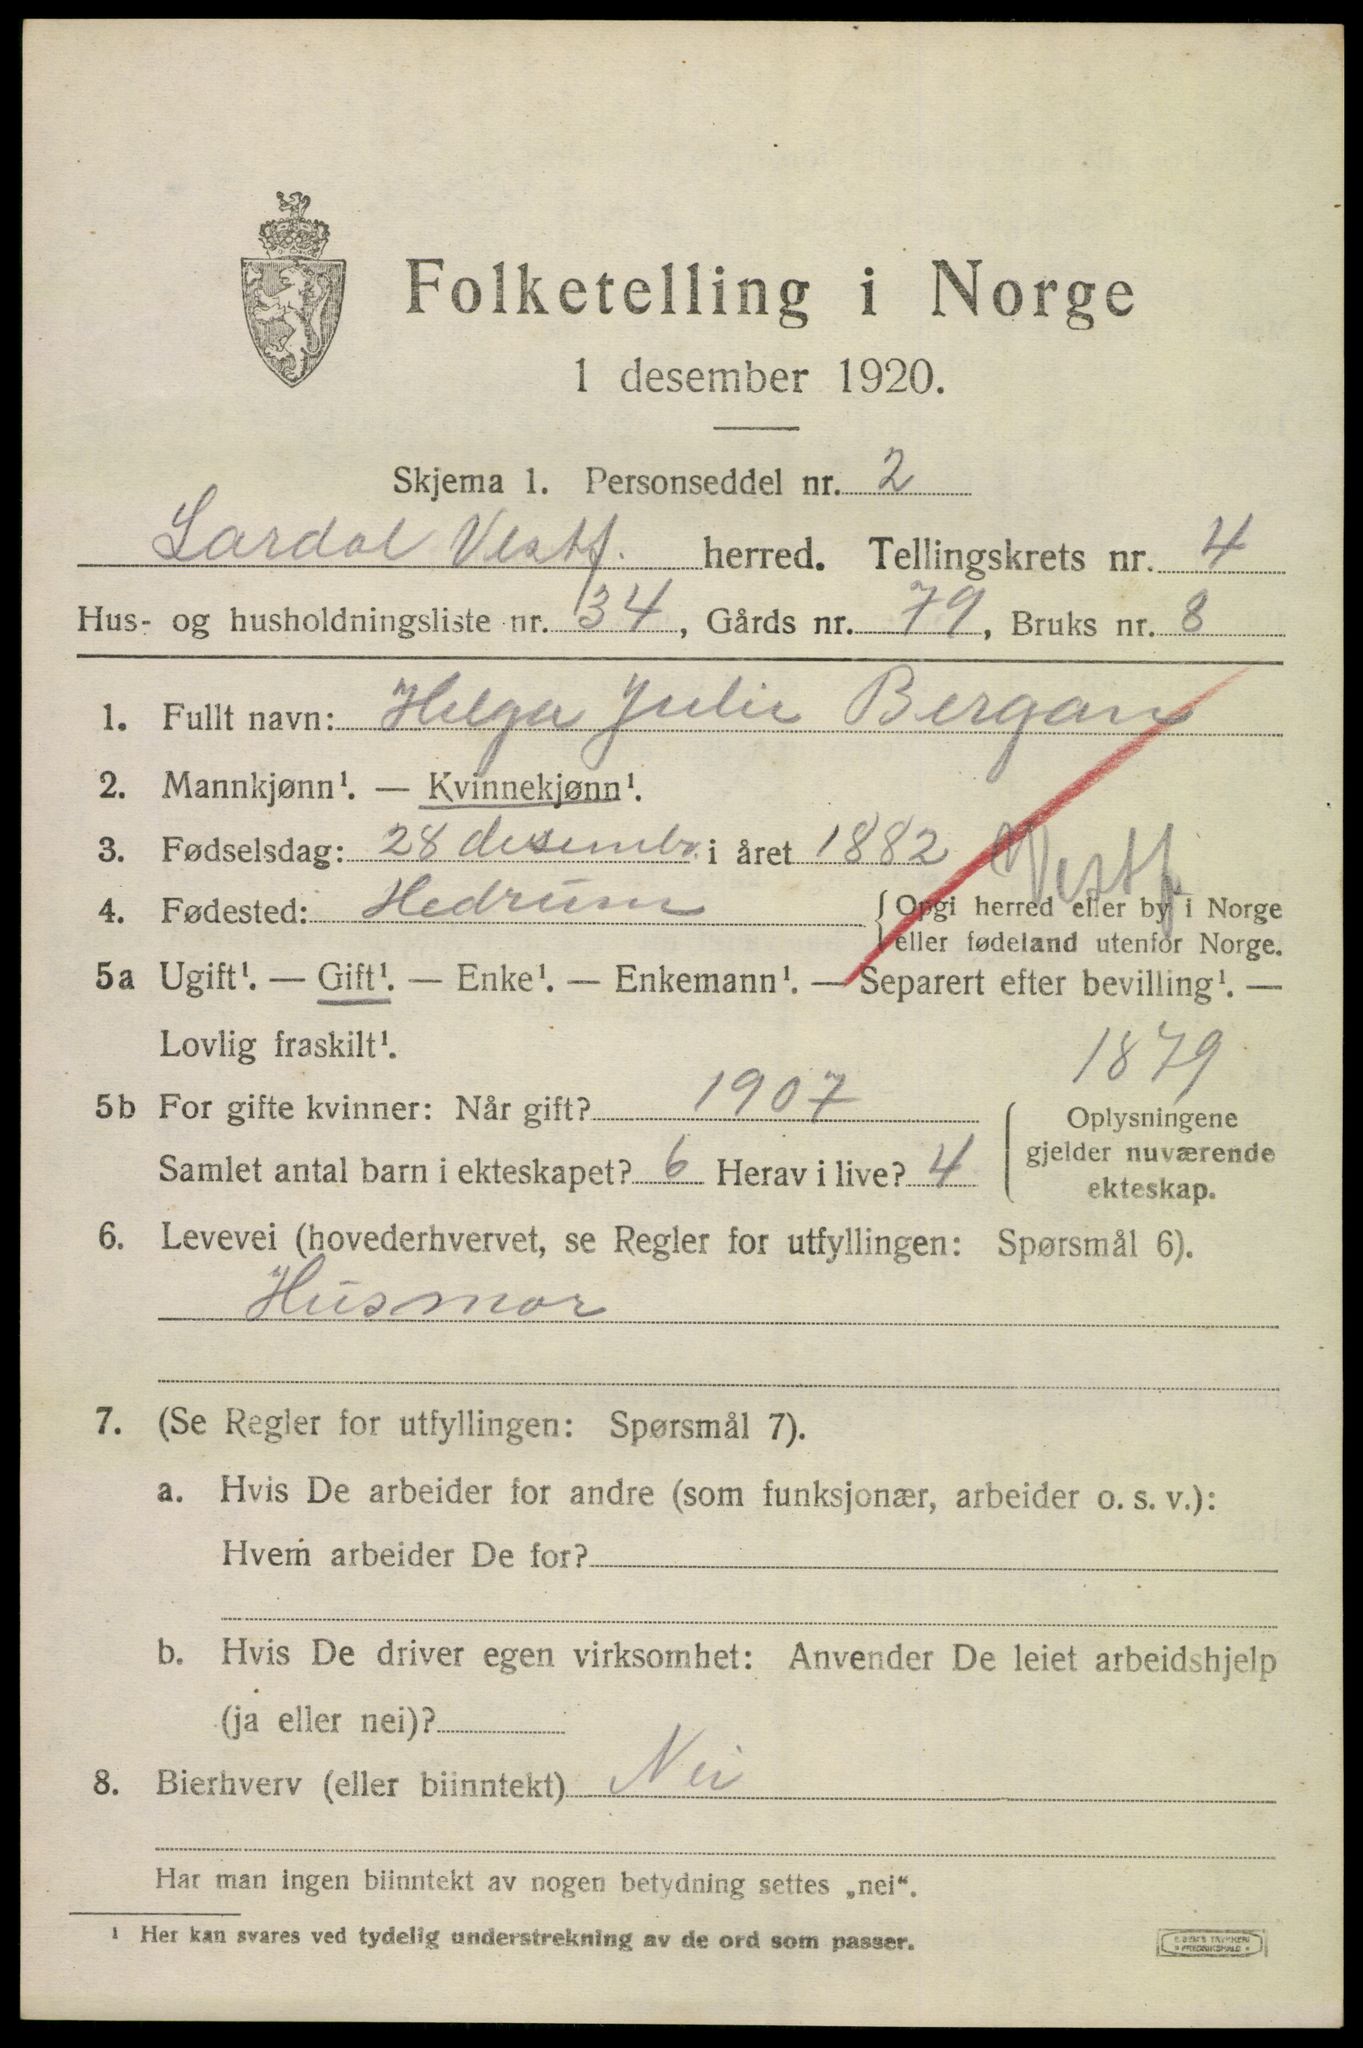 Folketelling i Norge
1 desember 1920.
Skjema 1. Personseddel nr. 2
Lardal Vestf. herred. Tellingskrets nr. 4
Hus- og husholdningsliste nr. 34, Gårds nr. 79, Bruks nr. 8
1. Fullt navn: Helga Julie Bergan
2. Mannkjønn¹. — Kvinnekjønn¹.
3. Fødselsdag: 28 desembr. i året 1882 Vestf.
4. Fødested: Hedrum { Opgi herred eller by i Norge
eller fødeland utenfor Norge.
5a Ugift¹. — Gift¹. — Enke¹. — Enkemann¹. — Separert efter bevilling¹. —
Lovlig fraskilt¹.
1879
5b For gifte kvinner: Når gift? 1907
Samlet antal barn i ekteskapet? 6 Herav i live? 4
Oplysningene
gjelder nuværende
ekteskap.
6. Levevei (hovederhvervet, se Regler for utfyllingen: Spørsmål 6).
Husmor
7. (Se Regler for utfyllingen: Spørsmål 7).
a. Hvis De arbeider for andre (som funksjonær, arbeider o. s. v.):
Hvem arbeider De for?
b. Hvis De driver egen virksomhet: Anvender De leiet arbeidshjelp
(ja eller nei)?
8. Bierhverv (eller biinntekt) Nei
Har man ingen biinntekt av nogen betydning settes „nei“.
¹ Her kan svares ved tydelig understrekning av de ord som passer.